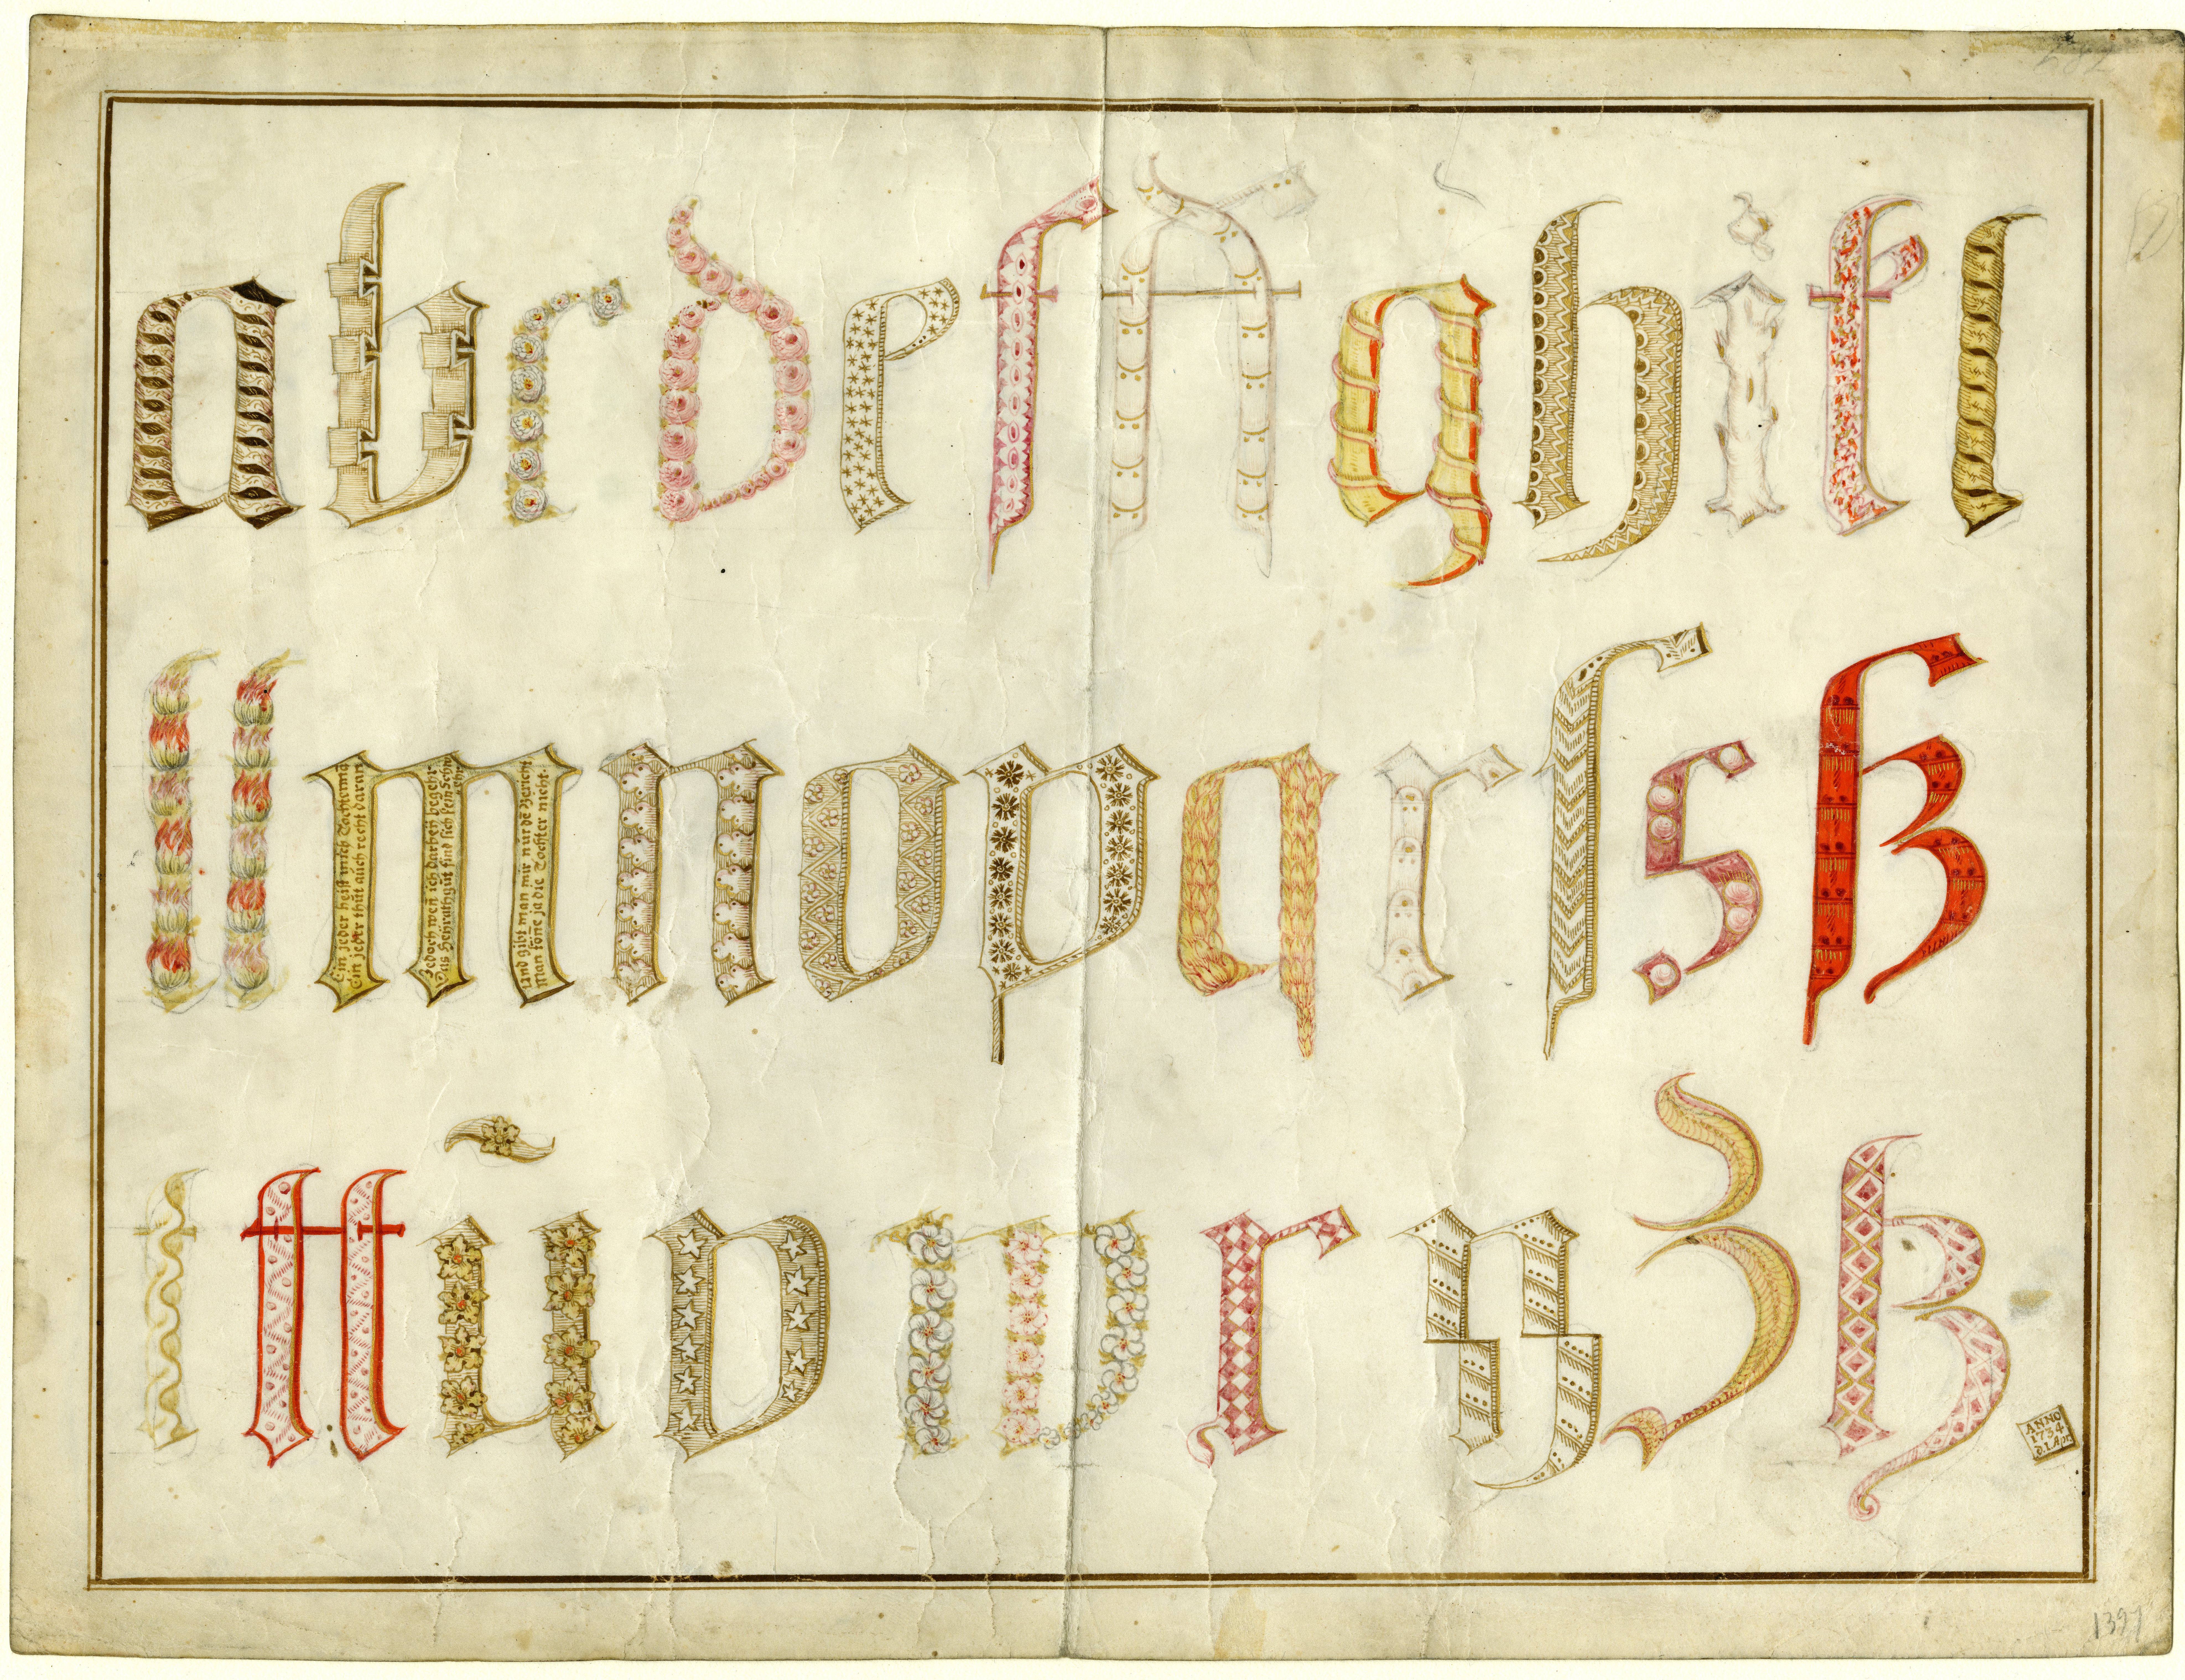 a b c d e f ff g h i k l
ll m n o p q r ſ s ß
t tt ü v w x y z ß
Ein jeder heist mich Tochtermā
Ein jeder thūt aūch recht daran
Jedoch weñ ich darbeÿ
Das Heÿrathgūt find sich kein
Und gibt man mir nūr
Man köne ja die Tochter nicht.
ANNO
1734
d. 1. Apr.
1391